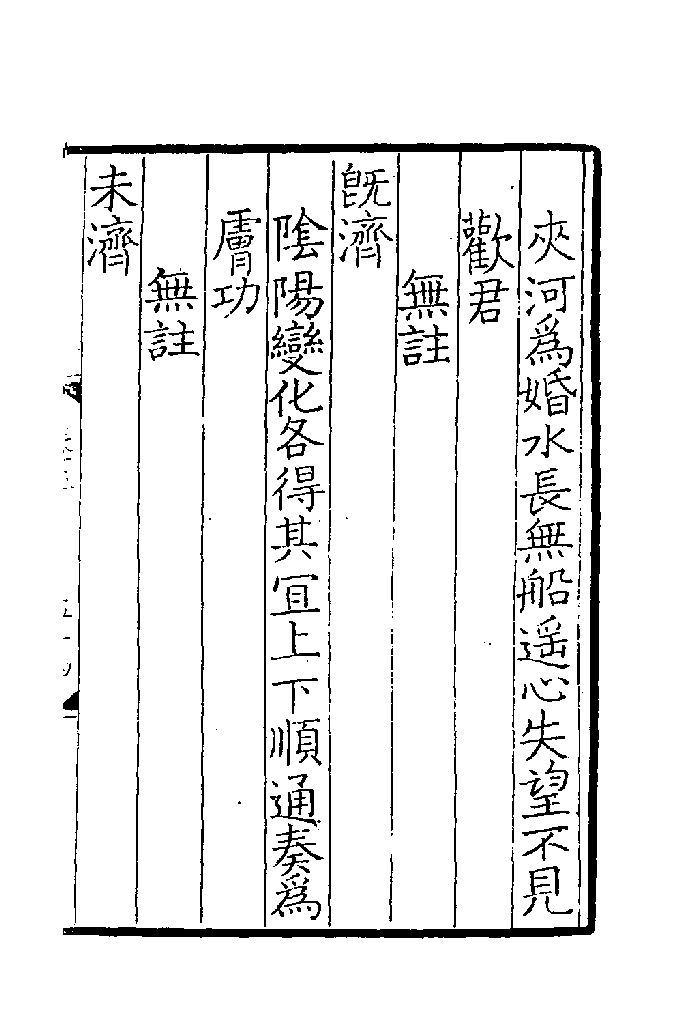 夾河爲婚水長無船遥心失望不見
歡君
無註
旣濟
隂陽變化各得其宜上下順通奏爲
膚功
無註
未濟